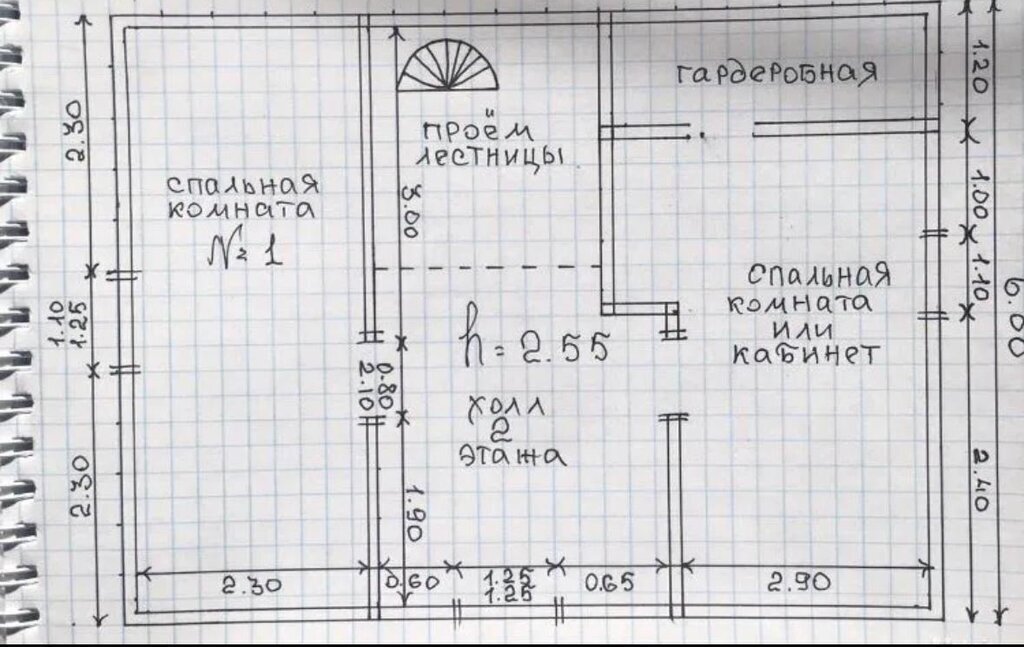 гардеробная
1.20
проём
лестницы
2.30
спальная
комната
№ 1
3.00
1.00
спальная
комната
или
кабинет
1.10
6.00
1.10
1.25
h = 2.55
0.80
2.10
холл
2
этажа
2.30
1.90
2.40
2.30
0.60
1.25
1.25
0.65
2.90